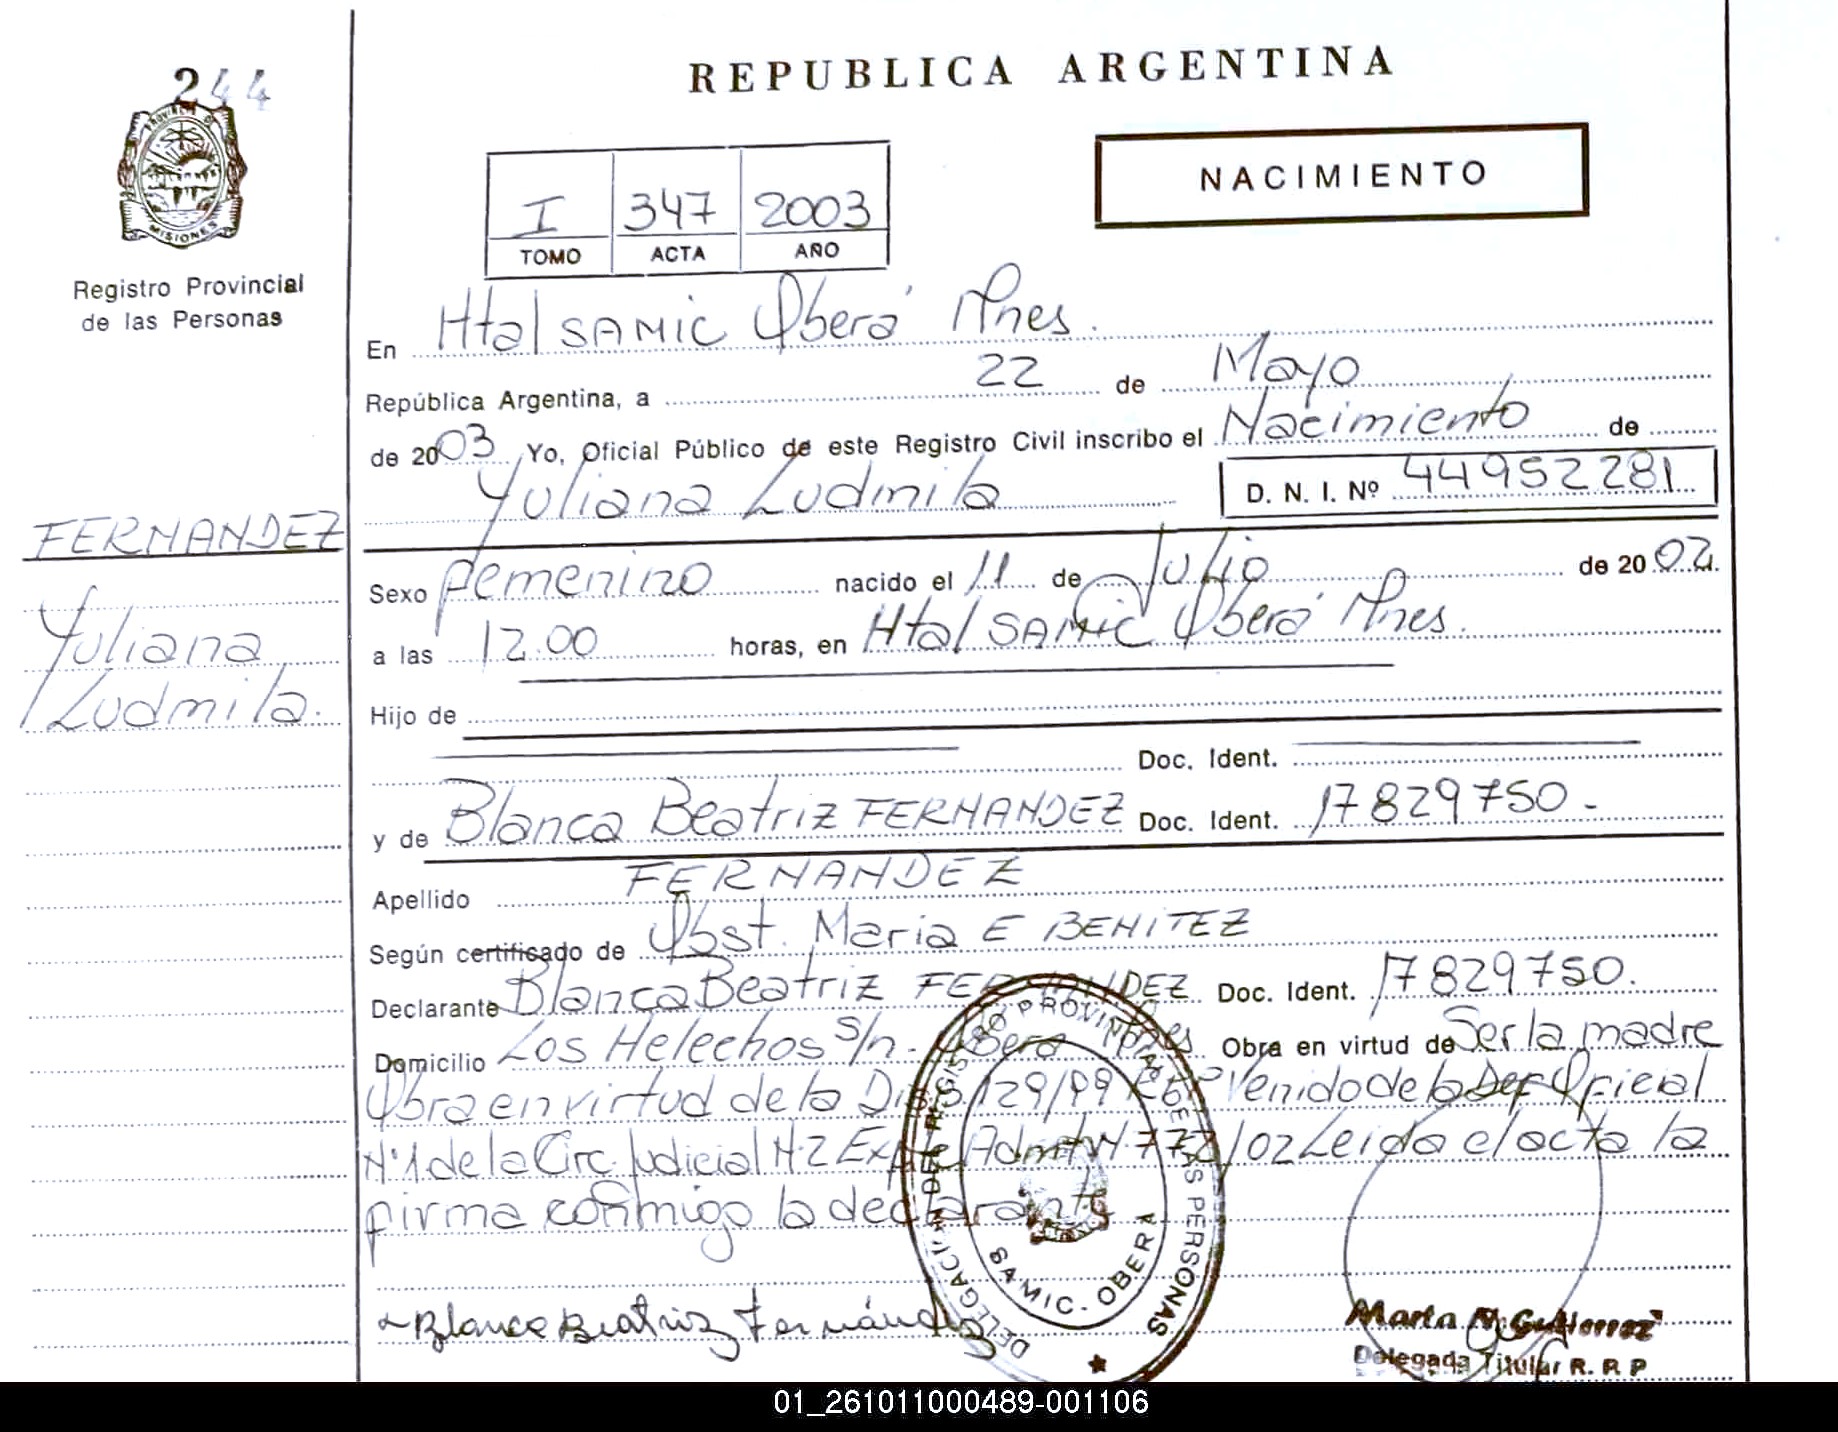 244
PROVINCIA D
MISIONES
Registro Provincial
de las Personas
REPUBLICA ARGENTINA
NACIMIENTO
I 347 2003
TOMO ACTA AÑO
En Htal SAMIC Oberá Mnes.
República Argentina, a 22 de Mayo
de 2003 Yo, Oficial Público de este Registro Civil inscribo el Nacimiento de
Yuliana Ludmila D. N. I. Nº 44952281
FERNANDEZ
Yuliana
Ludmila.
Sexo femenino nacido el 11 de Julio de 2002.
a las 12.00 horas, en Htal SAMIC Oberá Mnes.
Hijo de
Doc. Ident.
y de Blanca Beatriz FERNANDEZ Doc. Ident. 17829750.-
Apellido FERNANDEZ
Según certificado de Obst. Maria E BENITEZ
Declarante Blanca Beatriz FERNANDEZ Doc. Ident. 17829750.
Domicilio Los Helechos s/n. Oberá Mnes Obra en virtud de Ser la madre
Obra en virtud de la Disp. 129/99 venido de la Def Oficial
Nº1 de la Circ Judicial N·2 Expte Admt N·772/02 Leida el acta la
firma conmigo la declarante
Blanca Beatriz Fernández
DELEGACION DEL REGISTRO PROVINCIAL DE LAS PERSONAS
SAMIC. OBERA
Marta M. Gutierrez
Delegada Titular R. P. P
01_261011000489-001106